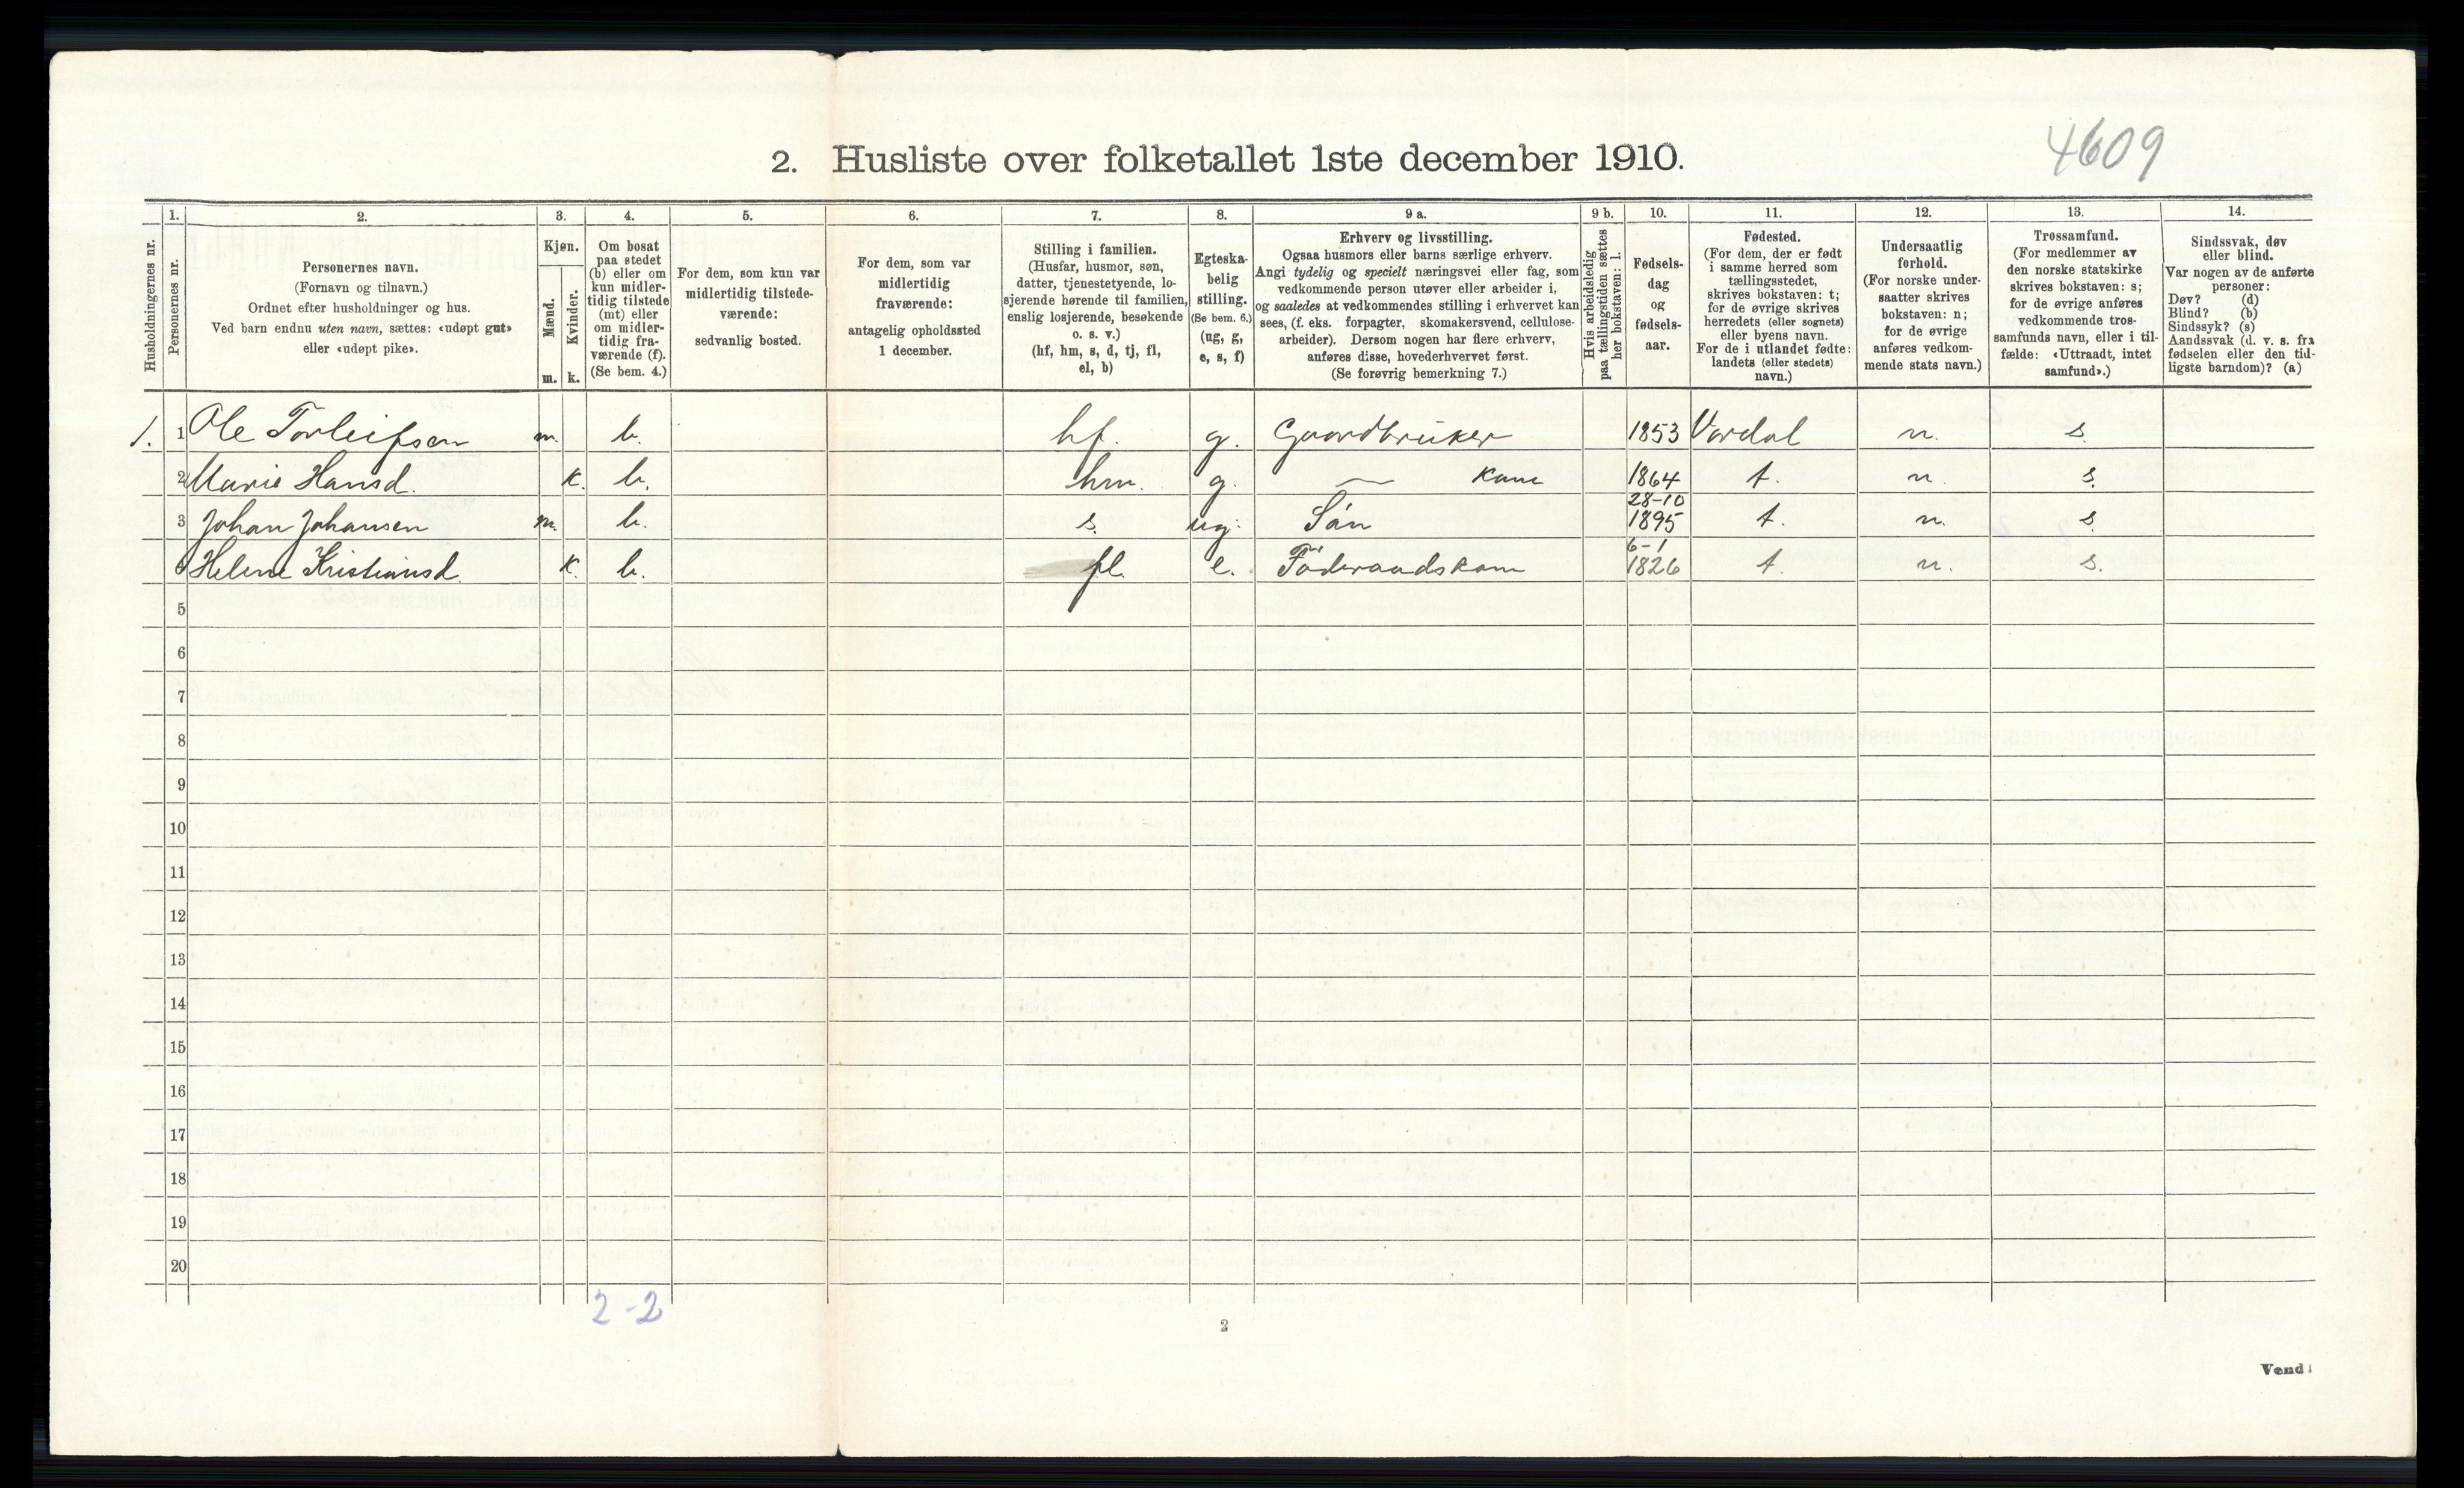 4609
2. Husliste over folketallet 1ste december 1910.
Husholdningernes nr.
1.
Personernes nr.
2.
Personernes navn.
(Fornavn og tilnavn.)
Ordnet efter husholdninger og hus.
Ved barn endnu uten navn, sættes: «udøpt gut»
eller «udøpt pike».
3.
Kjøn.
Mænd.
Kvinder.
m. k.
4.
Om bosat
paa stedet
(b) eller om
kun midler-
tidig tilstede
(mt) eller
om midler-
tidig fra-
værende (f).
(Se bem. 4.)
5.
For dem, som kun var
midlertidig tilstede-
værende:
sedvanlig bosted.
6.
For dem, som var
midlertidig
fraværende:
antagelig opholdssted
1 december.
7.
Stilling i familien.
(Husfar, husmor, søn,
datter, tjenestetyende, lo-
sjerende hørende til familien,
enslig losjerende, besøkende
o. s. v.)
(hf, hm, s, d, tj, fl,
el, b)
8.
Egteska-
belig
stilling.
(Se bem. 6.)
(ug, g,
e, s, f)
9 a.
Erhverv og livsstilling.
Ogsaa husmors eller barns særlige erhverv.
Angi tydelig og specielt næringsvei eller fag, som
vedkommende person utøver eller arbeider i,
og saaledes at vedkommendes stilling i erhvervet kan
sees, (f. eks. forpagter, skomakersvend, cellulose-
arbeider). Dersom nogen har flere erhverv,
anføres disse, hovederhvervet først.
(Se forøvrig bemerkning 7.)
9 b.
Hvis arbeidsledig
paa tællingstiden sættes
her bokstaven: l.
10.
Fødsels-
dag
og
fødsels-
aar.
11.
Fødested.
(For dem, der er født
i samme herred som
tællingsstedet,
skrives bokstaven: t;
for de øvrige skrives
herredets (eller sognets)
eller byens navn.
For de i utlandet fødte:
landets (eller stedets)
navn.)
12.
Undersaatlig
forhold.
(For norske under-
saatter skrives
bokstaven: n;
for de øvrige
anføres vedkom-
mende stats navn.)
13.
Trossamfund.
(For medlemmer av
den norske statskirke
skrives bokstaven: s;
for de øvrige anføres
vedkommende tros-
samfunds navn, eller i til-
fælde: «Uttraadt, intet
samfund».)
14.
Sindssvak, døv
eller blind.
Var nogen av de anførte
personer:
Døv? (d)
Blind? (b)
Sindssyk? (s)
Aandssvak (d. v. s. fra
fødselen eller den tid-
ligste barndom)? (a)
1. 1 Ole Torleifsen m. b. hf. g. Gaardbruker 1853 Vardal n. s.
2 Marie Hansd. k. b. hm. g. — Kone 1864 t. n. s.
3 Johan Johansen m. b. s. ug. Sön 28-10 1895 t. n. s.
Helene Kristiansd. k. b. fl. e. Föderaadskone 6-1 1826 t. n. s.
5
6
7
8
9
10
11
12
13
14
15
16
17
18
19
20
2-2
2
Vend!